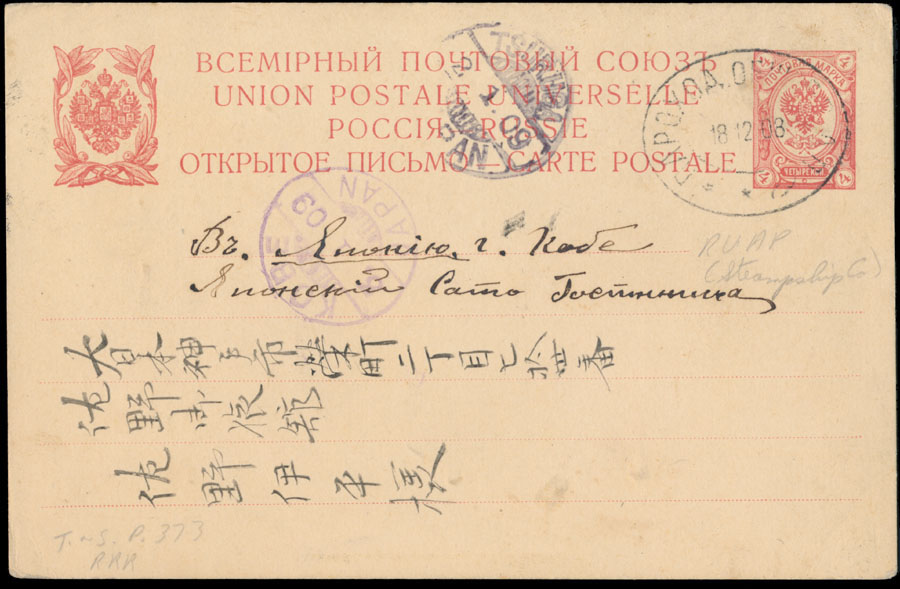 ВСЕМІРНЫЙ ПОЧТОВЫЙ СОЮЗЪ
UNION POSTALE UNIVERSELLE
РОССІЯ RUSSIE
ОТКРЫТОЕ ПИСЬМО—CARTE POSTALE
4 4
ПОЧТОВАЯ МАРКА
4 4
TSURUGA
1. 09
JAPAN
ПАРОХОД. О
18 12 08
KOBE
09
JAPAN
Въ Японію. г. Кобе
Японскій Сато Гостинница
RUAP
(Steamship Co)
大日本神戸市 町二丁目七拾 番
佐野 旅館
佐野伊平様
T. ~S. P. 373
RRR